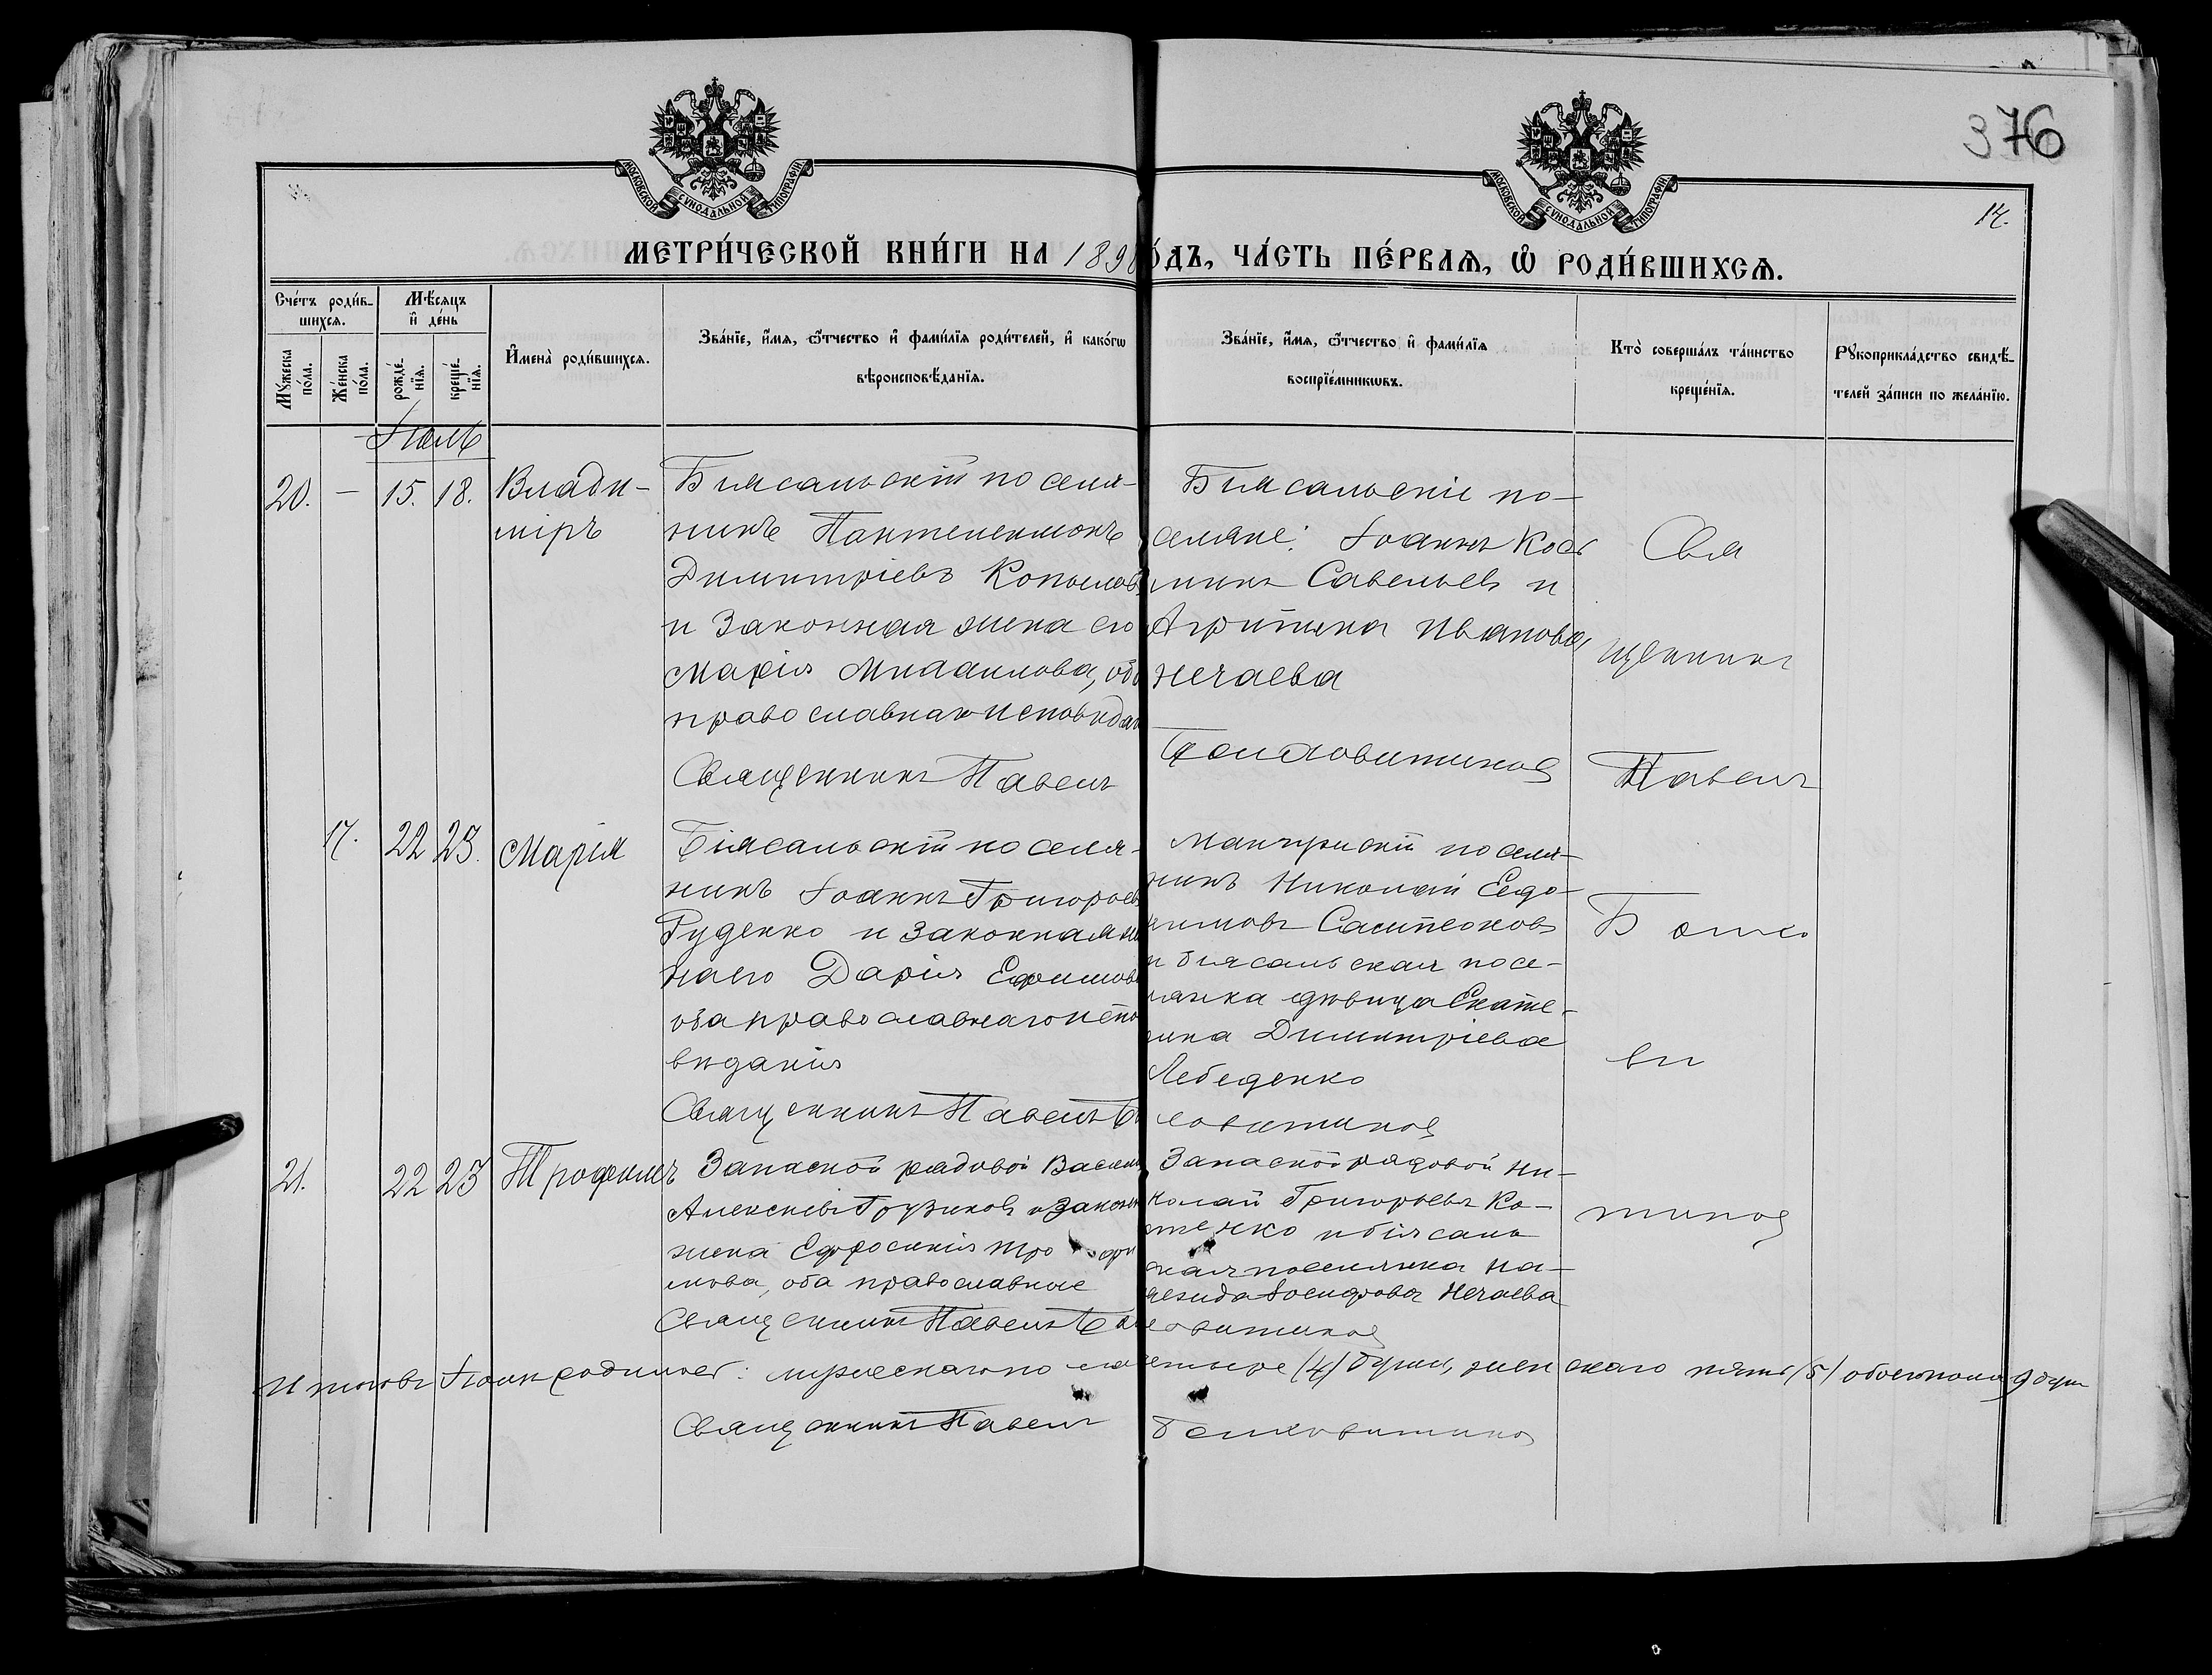 376
14.
МОСКОВСКОЙ СѴНОДАЛЬНОЙ ТИПОГРАФІИ
МОСКОВСКОЙ СѴНОДАЛЬНОЙ ТИПОГРАФІИ
МЕТРИ́ЧЕСКОЙ КНИ́ГИ НА 1898 ГО́ДЪ, ЧА́СТЬ ПЕ́РВАѦ, Ѡ РОДИ́ВШИХСѦ.
Сче́тъ роди́в-
шихсѧ.
Мꙋ́жеска по́ла.
Же́нска по́ла.
Мѣ́сѧцъ
и҆ де́нь
рожде́-
нїѧ.
креще́-
нїѧ.
И҆мена̀ роди́вшихсѧ.
Зва́нїе, и҆́мѧ, ѻ҆́тчество и҆ фами́лїѧ роди́телей, и҆ како́гѡ
вѣроисповѣ́данїѧ.
Зва́нїе, и҆́мѧ, ѻ҆́тчество и҆ фами́лїѧ
воспрїе́мникѡвъ.
Кто̀ соверша́лъ та́инство
креще́нїѧ.
Рꙋкоприкла́дство свидѣ́-
телей за́писи по жела́нїю.
Іюль
20. — 15. 18.
Влади-
міръ
Біясальскій поселя-
нинъ Пантелеимонъ
Димитріевъ Копылов
и законная жена его
Марія Михаилова, оба
православнаго исповѣдан
Священникъ Павелъ
Біясальскіе по-
селяне: Іоаннъ Кось
минъ Савельевъ и
Агрипина Иванова
Нечаева
Болховитинов
Свя
щенникъ
Павелъ
Болхо
ви
тинов
17. 22 23.
Марія
Біясальскій поселя-
нинъ Іоаннъ Григорьев
Руденко и законная же
на его Дарія Ефимова
оба православнаго испо
вѣданія
Священникъ Павелъ Бо
Мангушскій поселя-
нинъ Николай Евдо-
кимовъ Сампсонов
и біясальская посе-
лянка дѣвица Екате-
рина Димитріева
Лебеденко
лховитинов
21. 22 23
Трофимъ
Запасной рядовой Васил
Алексѣевъ Грузинов и закон
жена Ефросинія Тро фи
мова, оба православные
Священникъ Павелъ Бол
Запасной рядовой Ни-
колай Григорьевъ Ко-
тенко и біясаль
ская поселянка На-
дежда Іосифова Нечаева
ховитинов
Итого въ Іюлѣ родилось: мужескаго пола четыре (4) души, женскаго пять (5) обоего пола 9 душ
Священникъ Павелъ Болховитинов